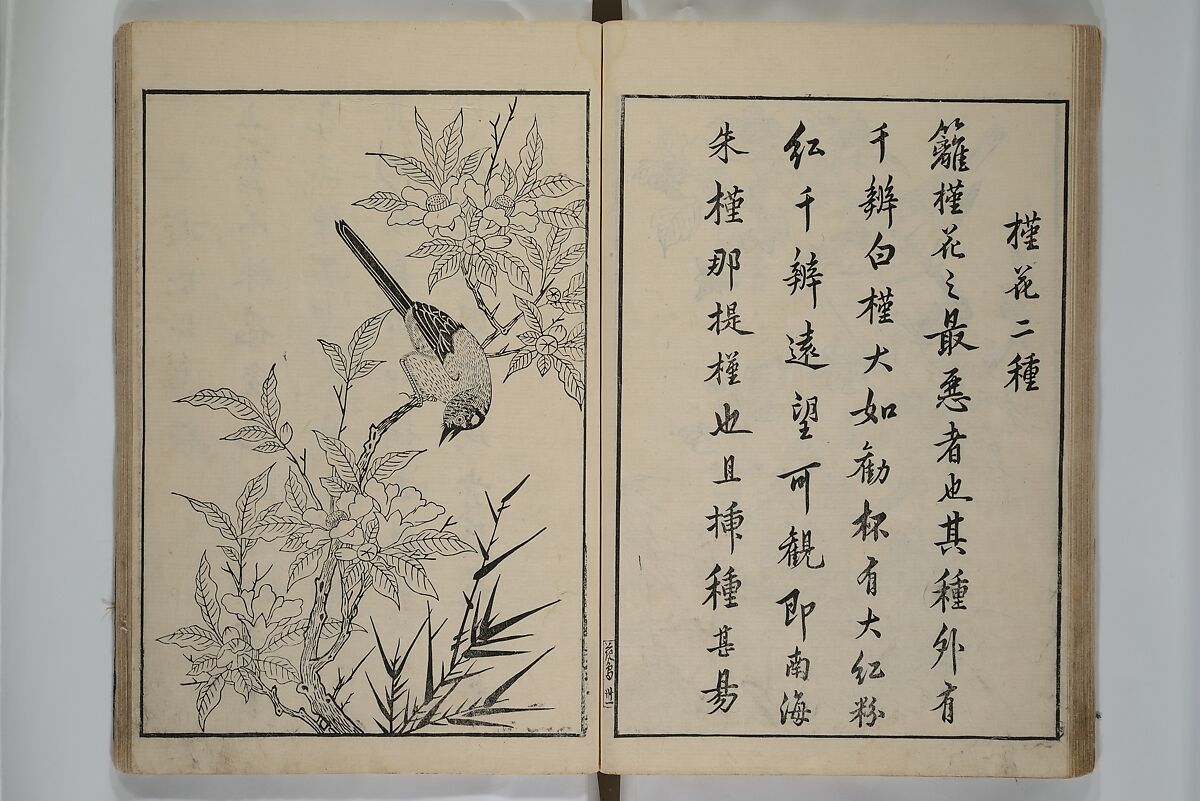 槿花二種
籬槿花之最惡者也其種外有
千瓣白槿大如勸杯有大紅粉
紅千瓣遠望可觀即南海
朱槿那提槿也且揷種甚易